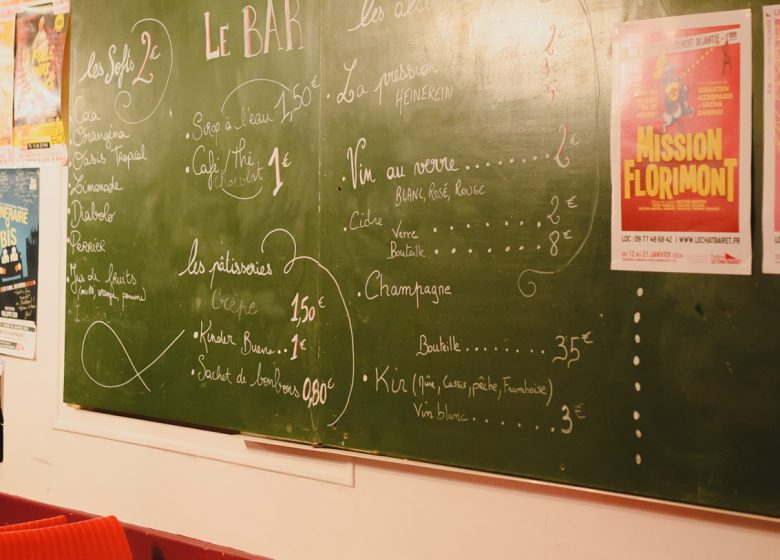 Le BAR
les Softs 2€
• Coca
• Orangina
• Oasis Tropical
• Limonade
• Diabolo
• Perrier
• Jus de fruits
(multi, orange, pomme)
• Sirop à l'eau 1,50€
• Café/Thé
chocolat 1€
les pâtisseries
Crêpe 1,50€
• Kinder Bueno.. 1€
• Sachet de bonbons 0,80€
les alco
2€
• La pression
HEINEKEIN
• Vin au verre.......... 2€
BLANC, ROSÉ, ROUGE
• Cidre
Verre .......... 2€
Bouteille .......... 8€
• Champagne
Bouteille.......... 35€
• Kir (Mûre, Cassis, pêche, Framboise)
Vin blanc.......... 3€
SÉBASTIEN
AZZOPARDI
& SACHA
DANINO
MISSION
FLORIMONT
LOC : 09 77 48 68 42 | WWW.LECHATBARET.FR
DU 12 AU 21 JANVIER 2024
BIS